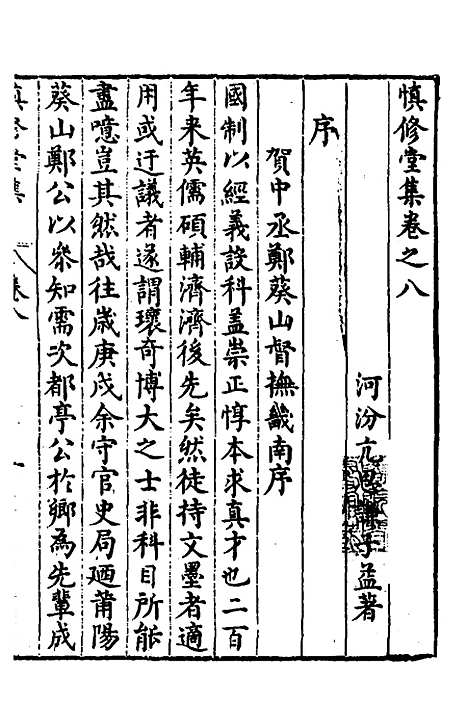 慎修堂集卷之八
河汾亢思謙子益著
序
賀中丞鄭葵山督撫畿南序
國制以經義設科盖崇正惇本求真才也二百
年来英儒碩輔濟濟後先矣然徒持文墨者適
用或迂議者遂謂瓌奇博大之士非科目所能
盡噫豈其然哉往歳庚戌余守官史局廼莆陽
葵山鄭公以叅知需次都亭公於鄉為先輩成
慎修堂集
卷八
一